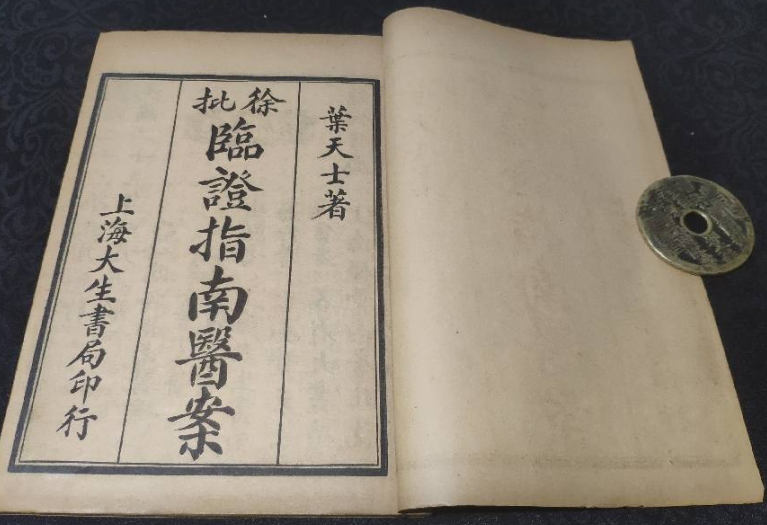 葉天士著
徐批
臨證指南醫案
上海大生書局印行